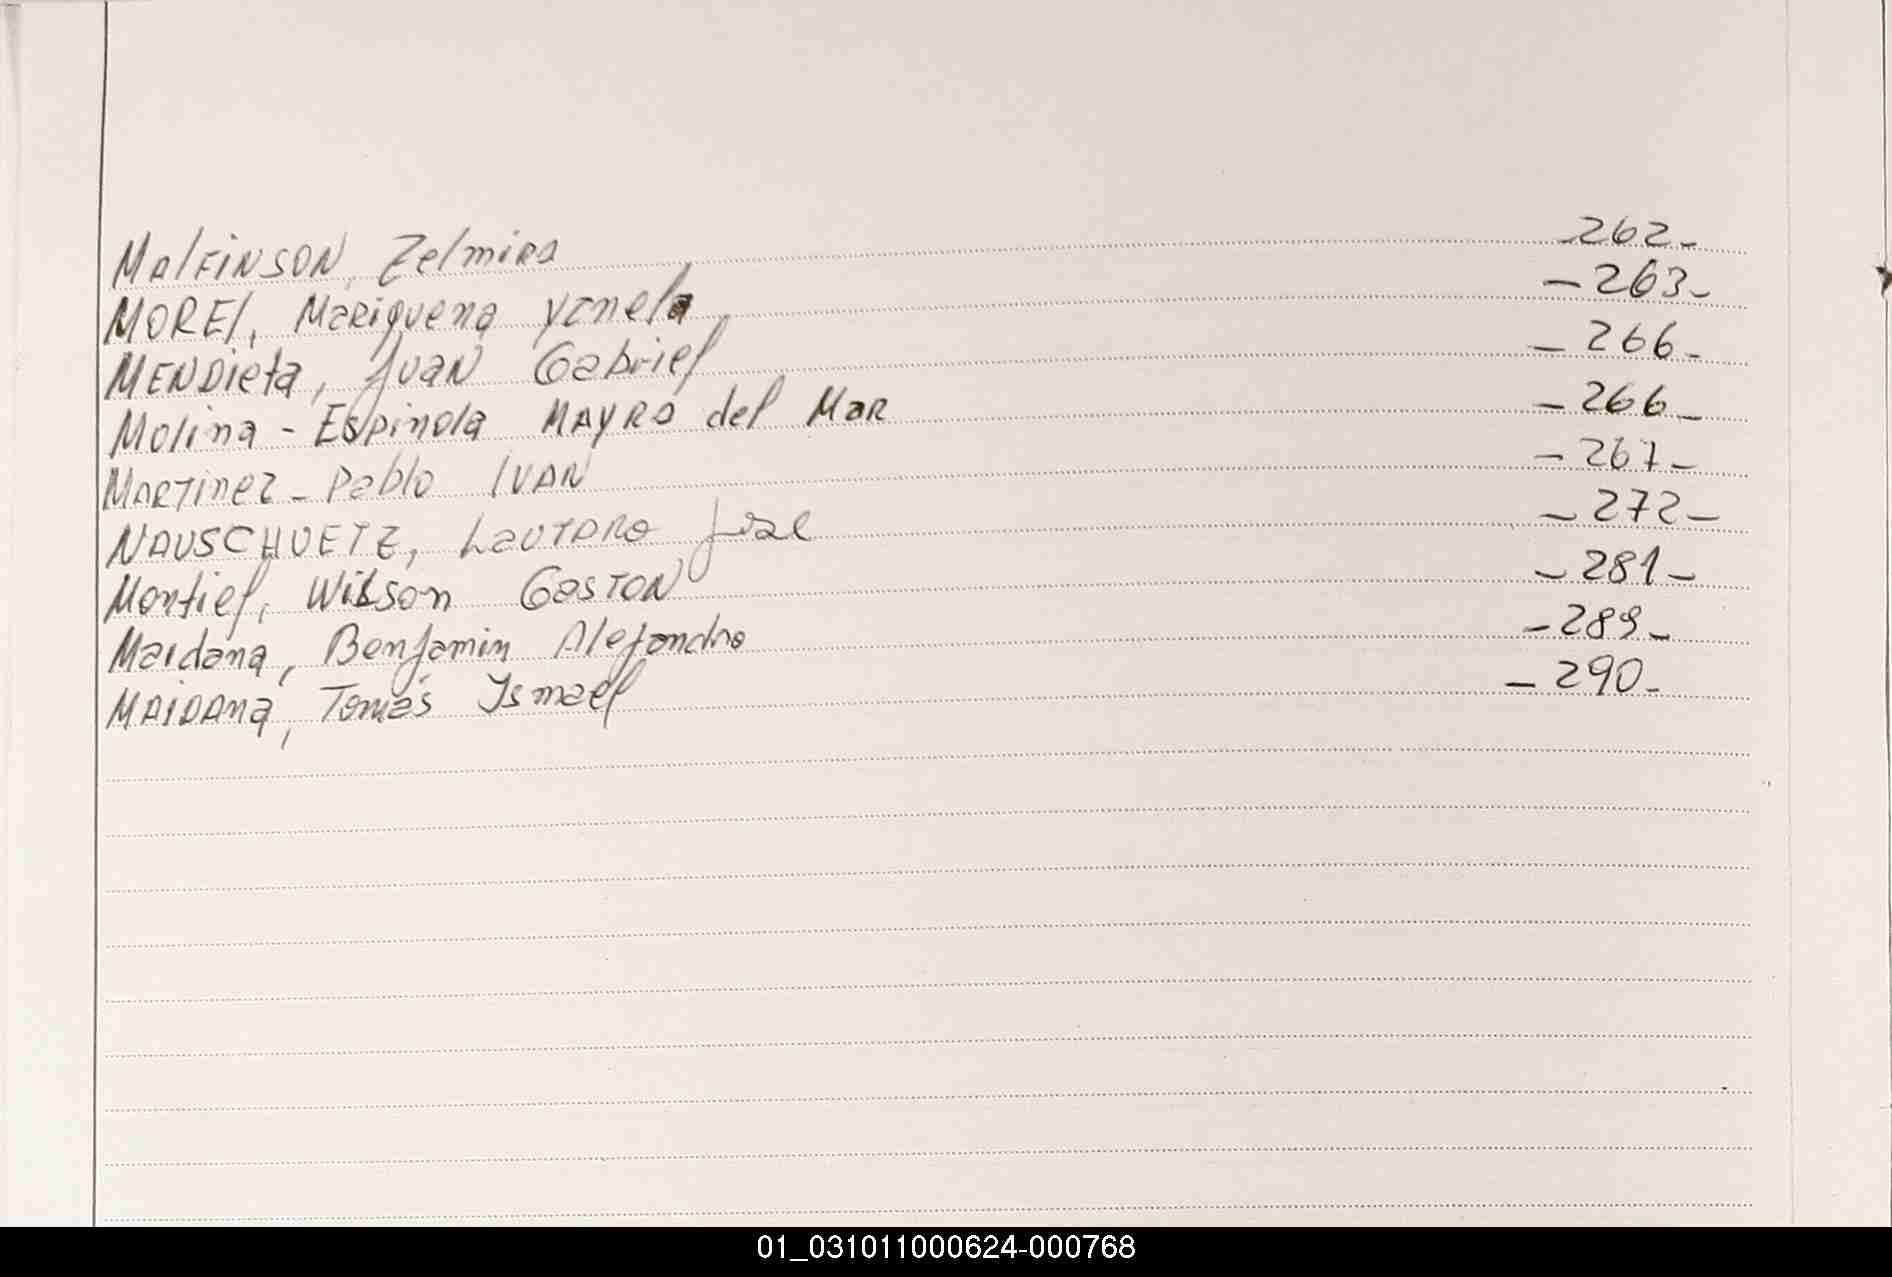 MalFiNSON, Zelmira -262-
MOREl, Mariquena Yanela -263-
MENDieta, Juan Gabriel -266-
Molina - Espinola MAYRA del Mar -266-
MARTinez - Pablo IVAN -267-
NAUSCHUETZ, LAUTARO José -272-
Montiel, Wilson GASTON -281-
Maidana, Benjamin Alejandro -289-
MAIDANA, Tomás Ismael -290-
01_031011000624-000768